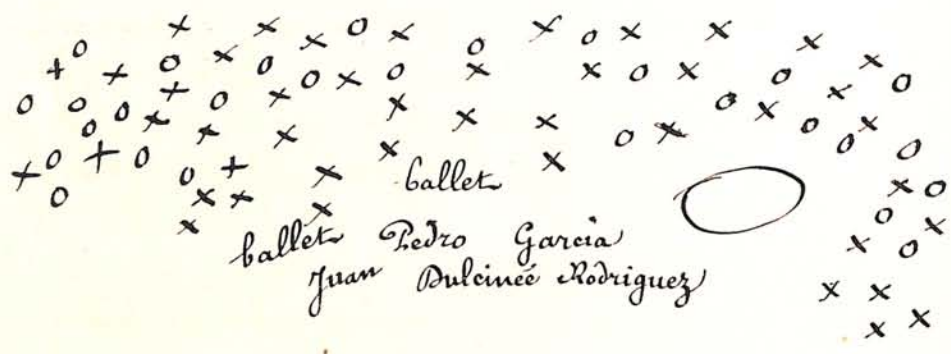 ballet
ballet Pedro Garcia
Juan Dulcineé Rodriguez